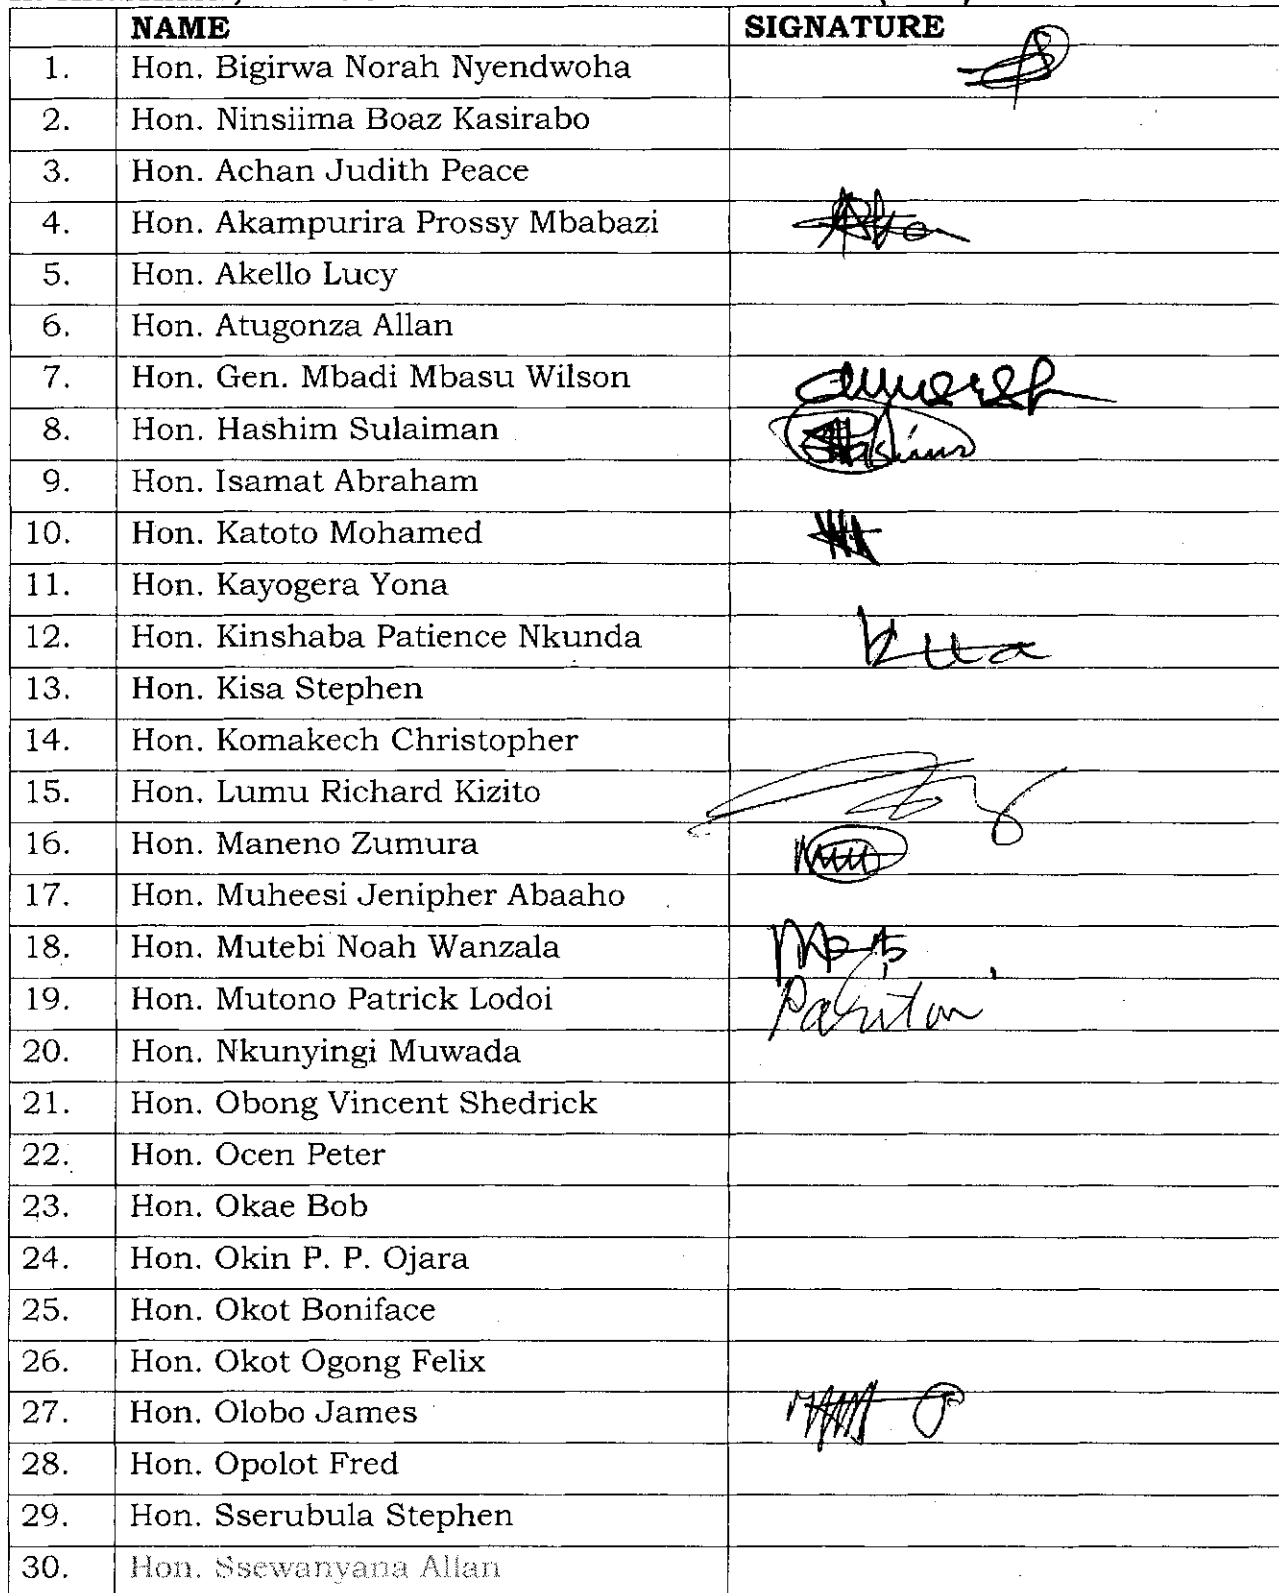 NAME SIGNATURE
1. Hon. Bigirwa Norah Nyendwoha
2. Hon. Ninsiima Boaz Kasirabo
3. Hon. Achan Judith Peace
4. Hon. Akampurira Prossy Mbabazi
5. Hon. Akello Lucy
6. Hon. Atugonza Allan
7. Hon. Gen. Mbadi Mbasu Wilson
8. Hon. Hashim Sulaiman
9. Hon. Isamat Abraham
10. Hon. Katoto Mohamed
11. Hon. Kayogera Yona
12. Hon. Kinshaba Patience Nkunda
13. Hon. Kisa Stephen
14. Hon. Komakech Christopher
15. Hon. Lumu Richard Kizito
16. Hon. Maneno Zumura
17. Hon. Muheesi Jenipher Abaaho
18. Hon. Mutebi Noah Wanzala
19. Hon. Mutono Patrick Lodoi
20. Hon. Nkunyingi Muwada
21. Hon. Obong Vincent Shedrick
22. Hon. Ocen Peter
23. Hon. Okae Bob
24. Hon. Okin P. P. Ojara
25. Hon. Okot Boniface
26. Hon. Okot Ogong Felix
27. Hon. Olobo James
28. Hon. Opolot Fred
29. Hon. Sserubula Stephen
30. Hon. Ssewanyana Allan